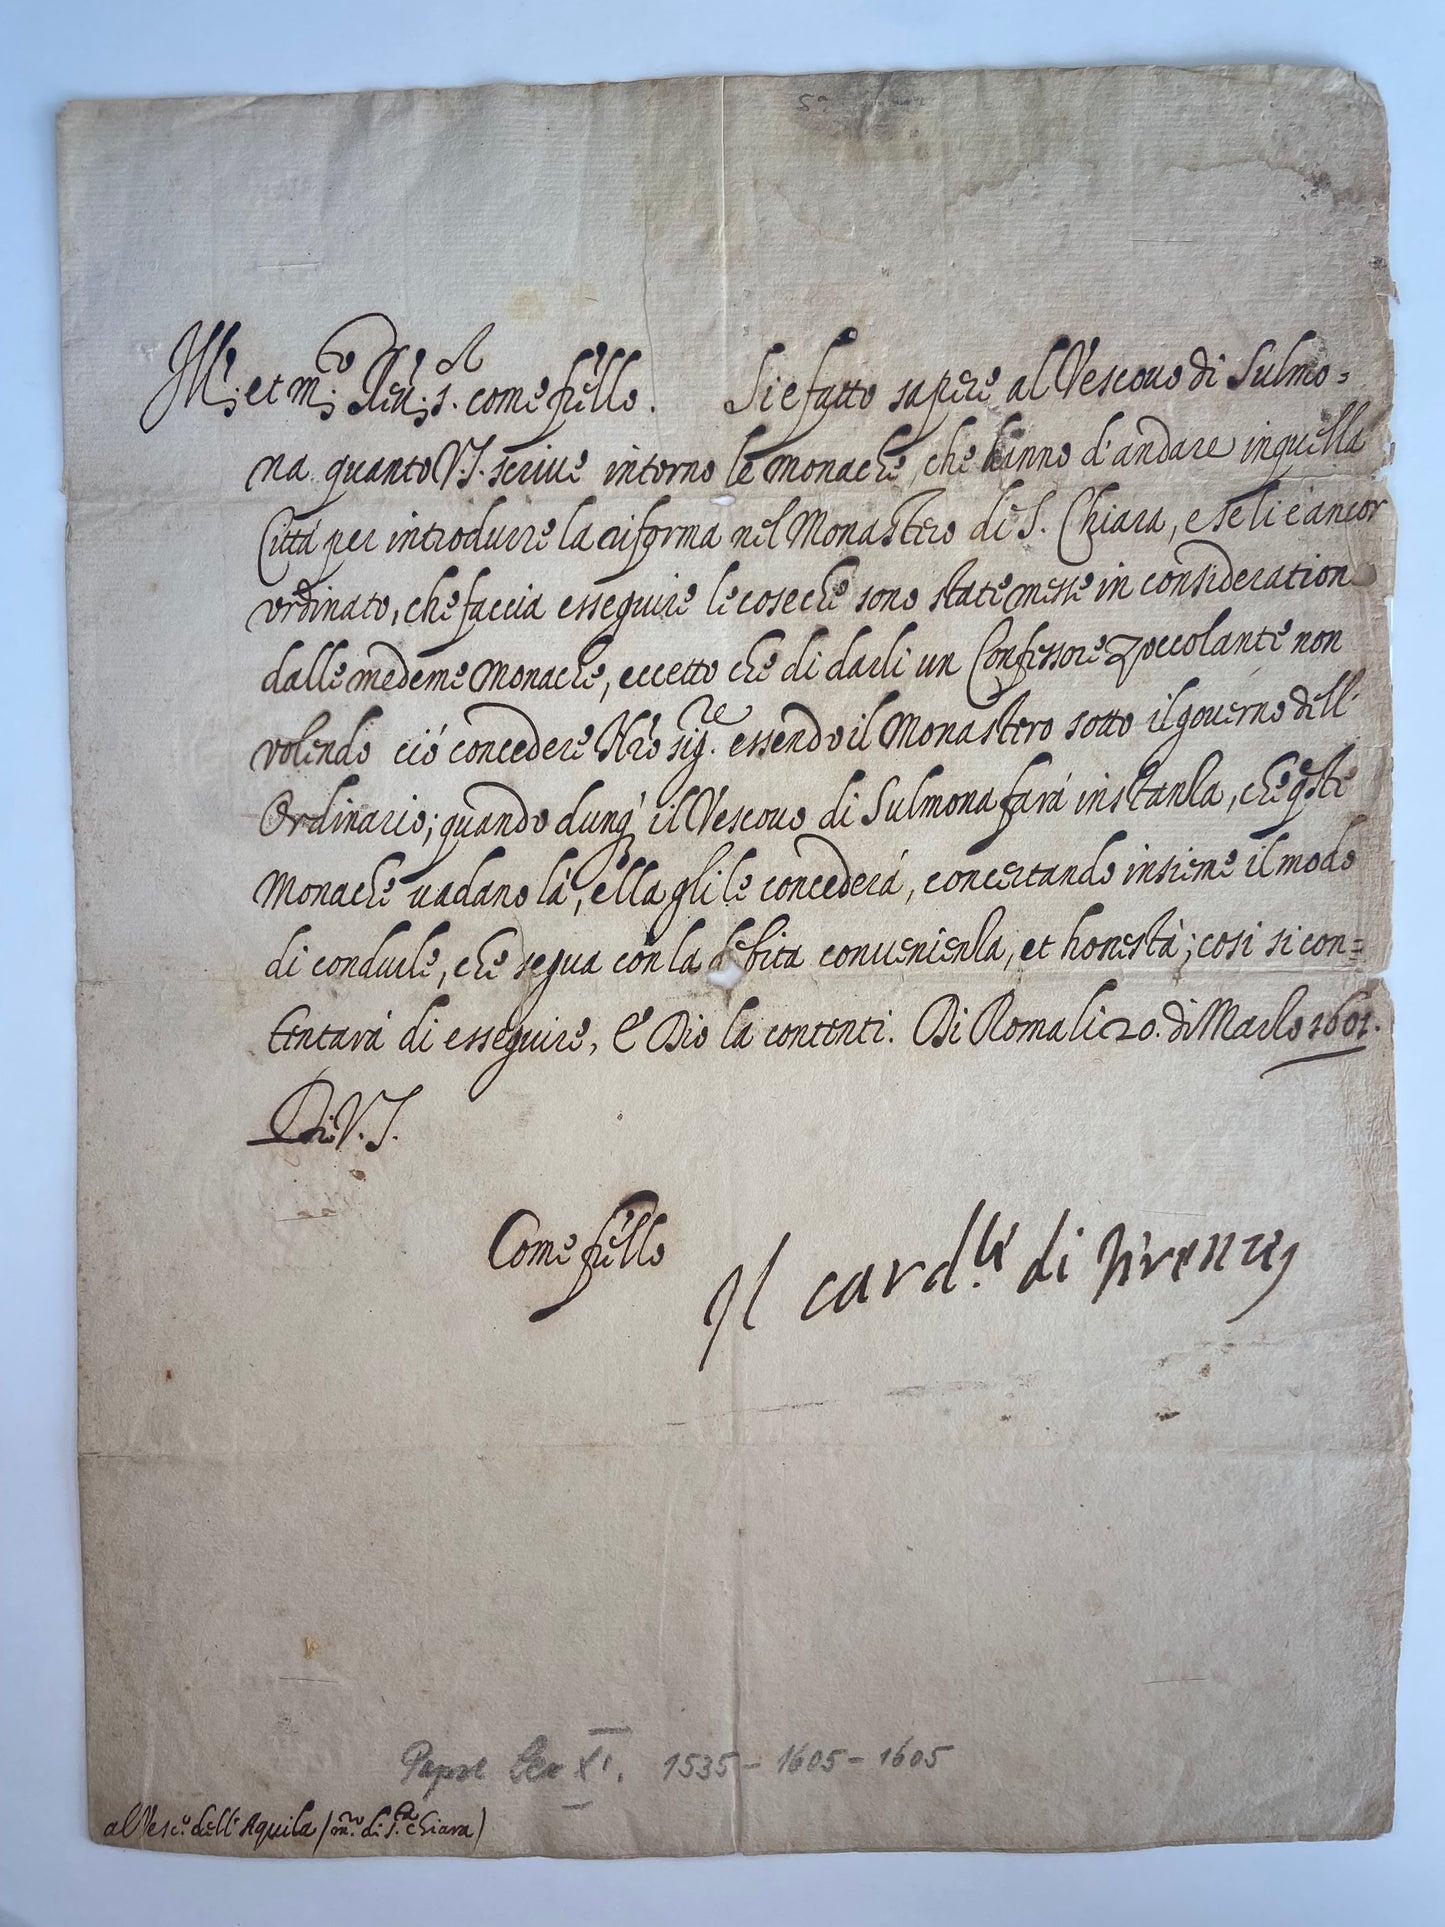 Ill.e et m.to Rev.e s.r come fr̃ello. Si e fatto sapere al Vescovo di Sulmo=
na quanto V.S. scrive intorno le monache, che hanno d'andare in quella
Città per introdurre la riforma nel Monastero di S. Chiara, e se li è ancor
ordinato, che faccia esseguire le cose che sono state messe in consideration
dalle medeme Monache, eccetto che di darli un Confessore Zoccolante non
volendo ciò concedere N̄ro sig.re essendo il Monastero sotto il governo dell'
Ordinario; quando dunq' il Vescovo di Sulmona farà instanza, che q̃ste
Monache vadano là, ella gli le concederà, concertando insieme il modo
di condurle, che segua con la debita convenienza, et honestà; così si con=
tentarà di esseguire, e Dio la contenti. Di Roma li 20. di Marzo 1601.
Di V.S.
Come fr̃ello
Il card.le di firenze
Papst Leo XI. 1535 - 1605 - 1605
al Vesc.o dell'Aquila (m.ro di S.ta Chiara)